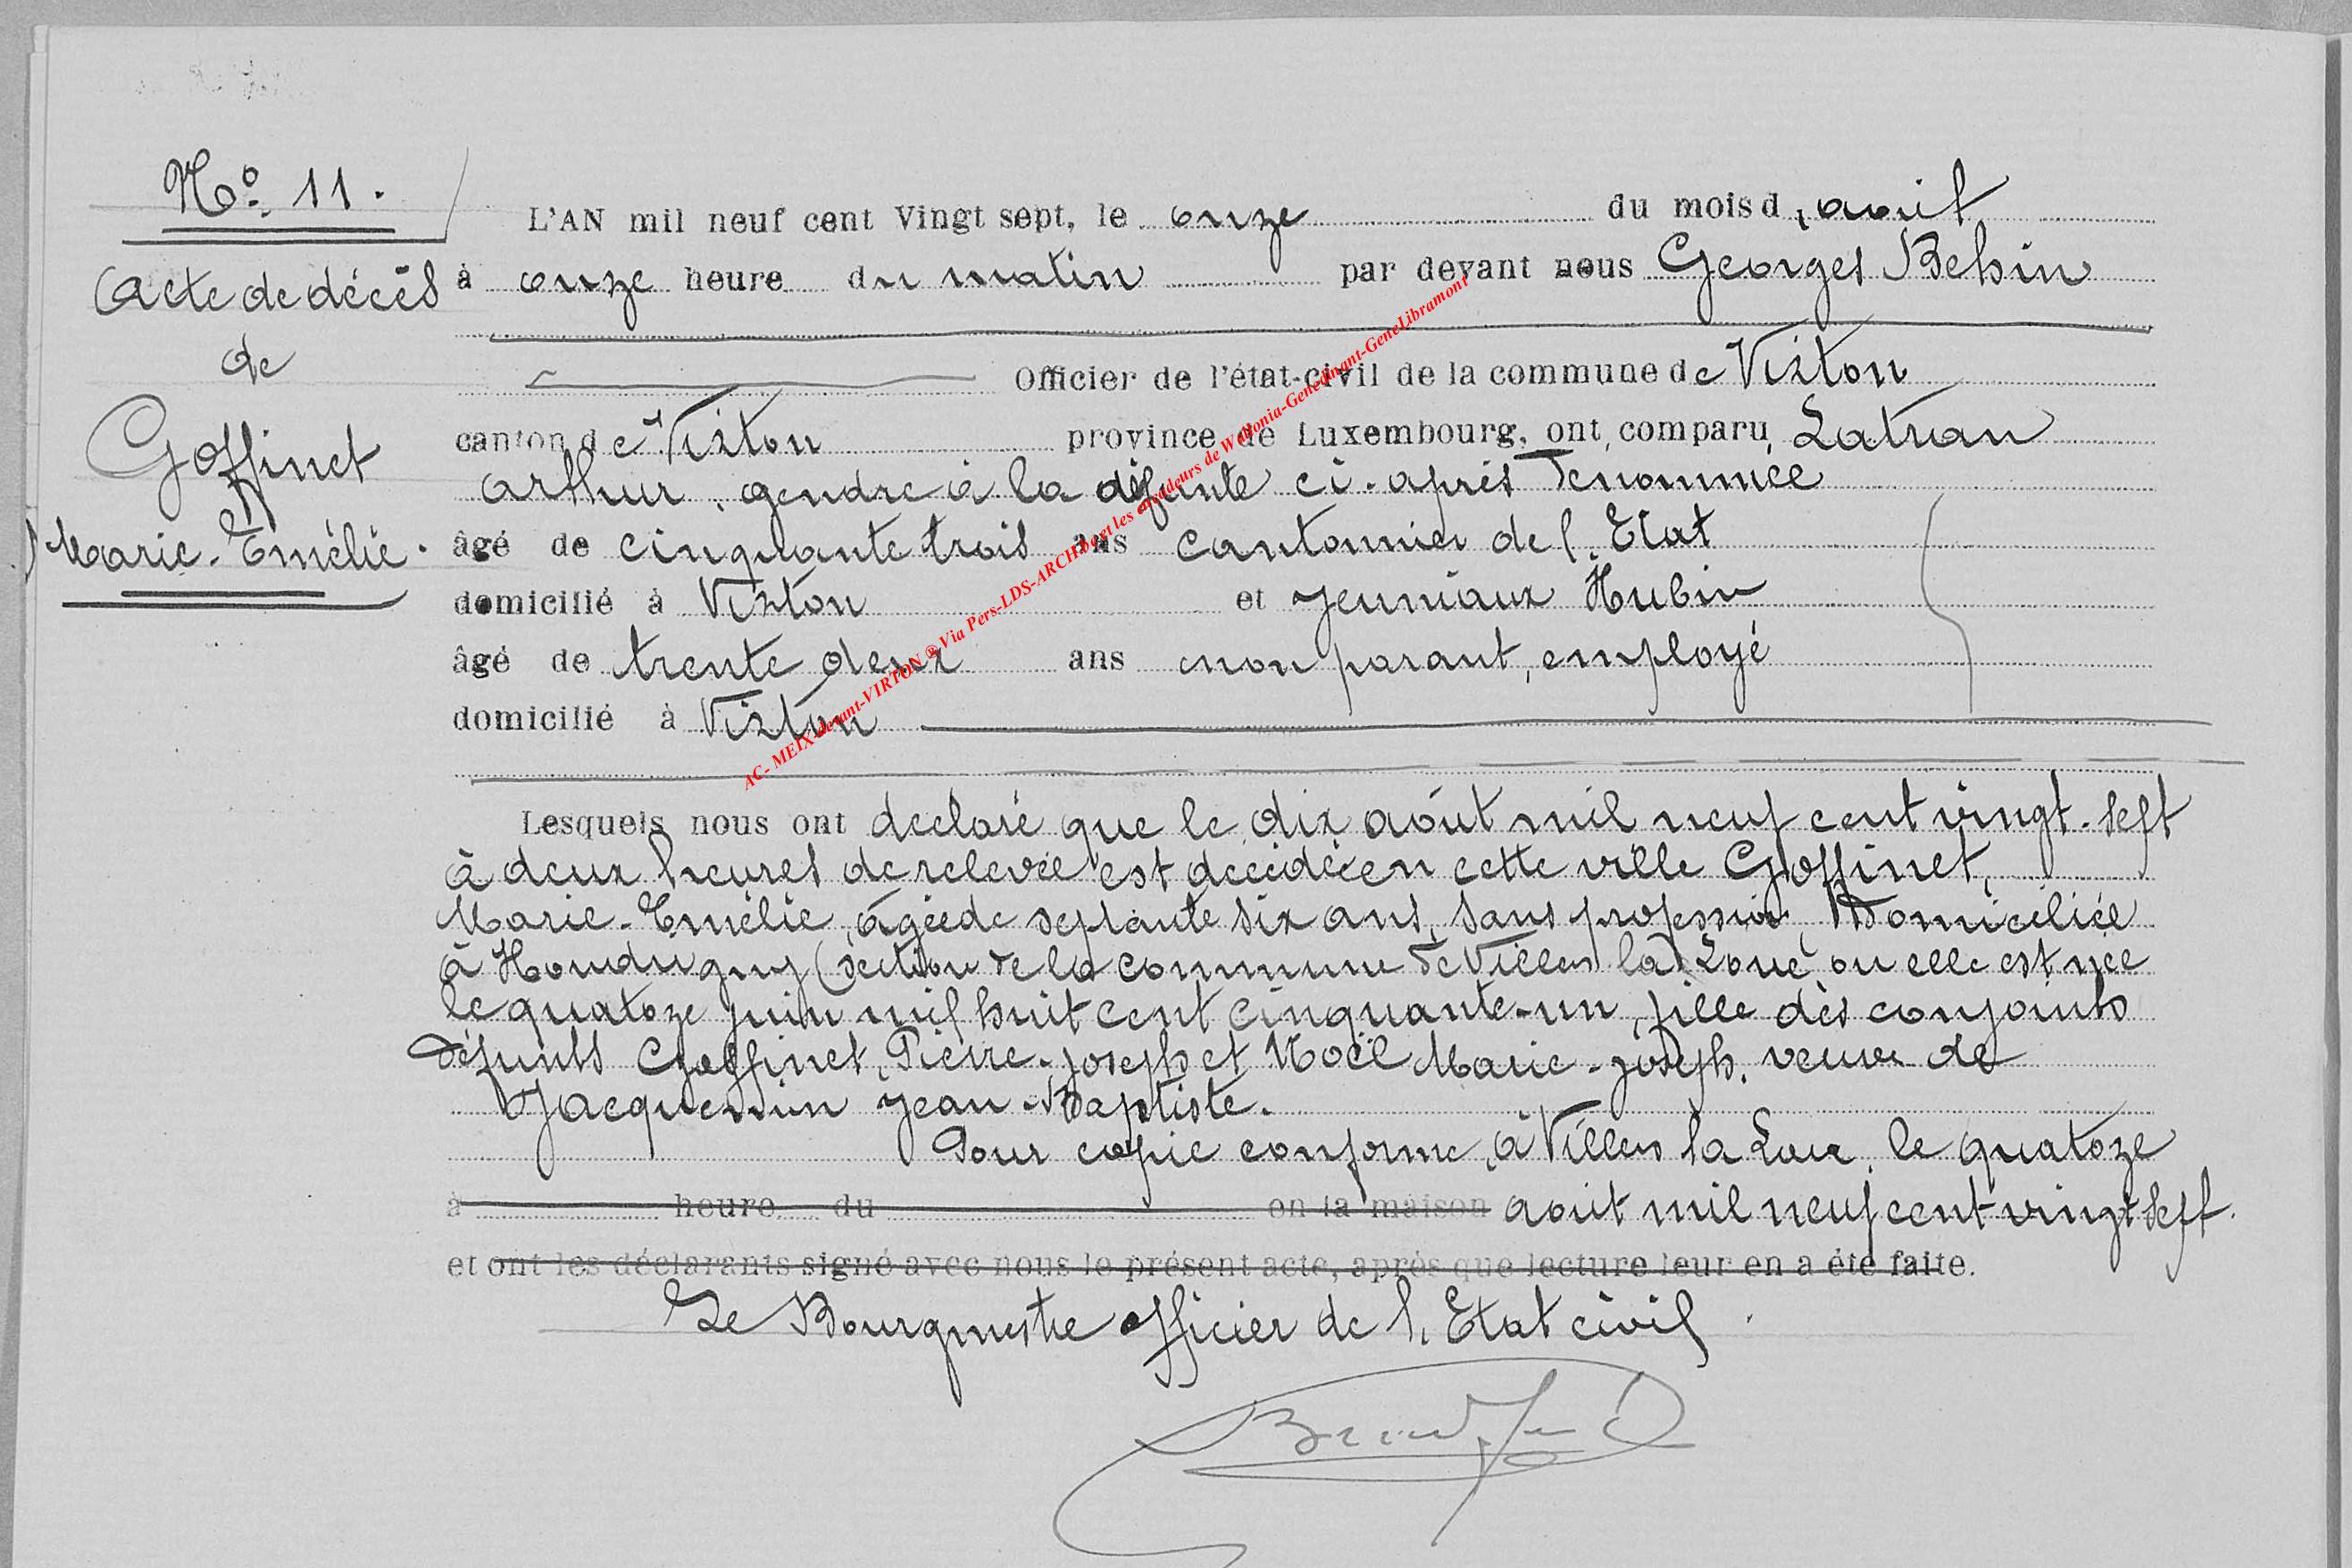 No. 11.
Acte de décès
de
Goffinet
Marie-Emélie.
L'AN mil neuf cent Vingt sept, le onze du mois d'août
à onze heure du matin par devant nous Georges Behin
Officier de l'état-civil de la commune de Virton
canton de Virton province de Luxembourg, ont comparu Latran
Arthur, gendre à la défunte ci-après dénommée
âgé de cinquante trois ans cantonnier de l'Etat
domicilié à Virton et Jeuniaux Hubin
âgé de trente deux ans non parant, employé
domicilié à Virton
Lesquels nous ont déclaré que le dix août mil neuf cent vingt-sept
à deux heures de relevée est décédée en cette ville Goffinet,
Marie-Emélie, âgée de septante six ans, sans profession, Domiciliée
à Houdrigny (section de la commune de Villers la Loue ou elle est née
le quatoze juin mil huit cent cinquante-un, fille des conjoints
défunts Goffinet, Pierre-joseph et Noël Marie-joseph. veuve de
Jacquemin Jean-Baptiste.
Pour copie conforme, à Villers la Loue, le quatoze
à heure du en la maison août mil neuf cent vingt sept.
et ont les déclarants signé avec nous le présent acte, après que lecture leur en a été faite.
Le Bourgmestre officier de l'Etat civil
AC- MEIX-devant-VIRTON ® Via Pers-LDS-ARCH.be et les encodeurs de Wallonia-Genedinant-GeneLibramont